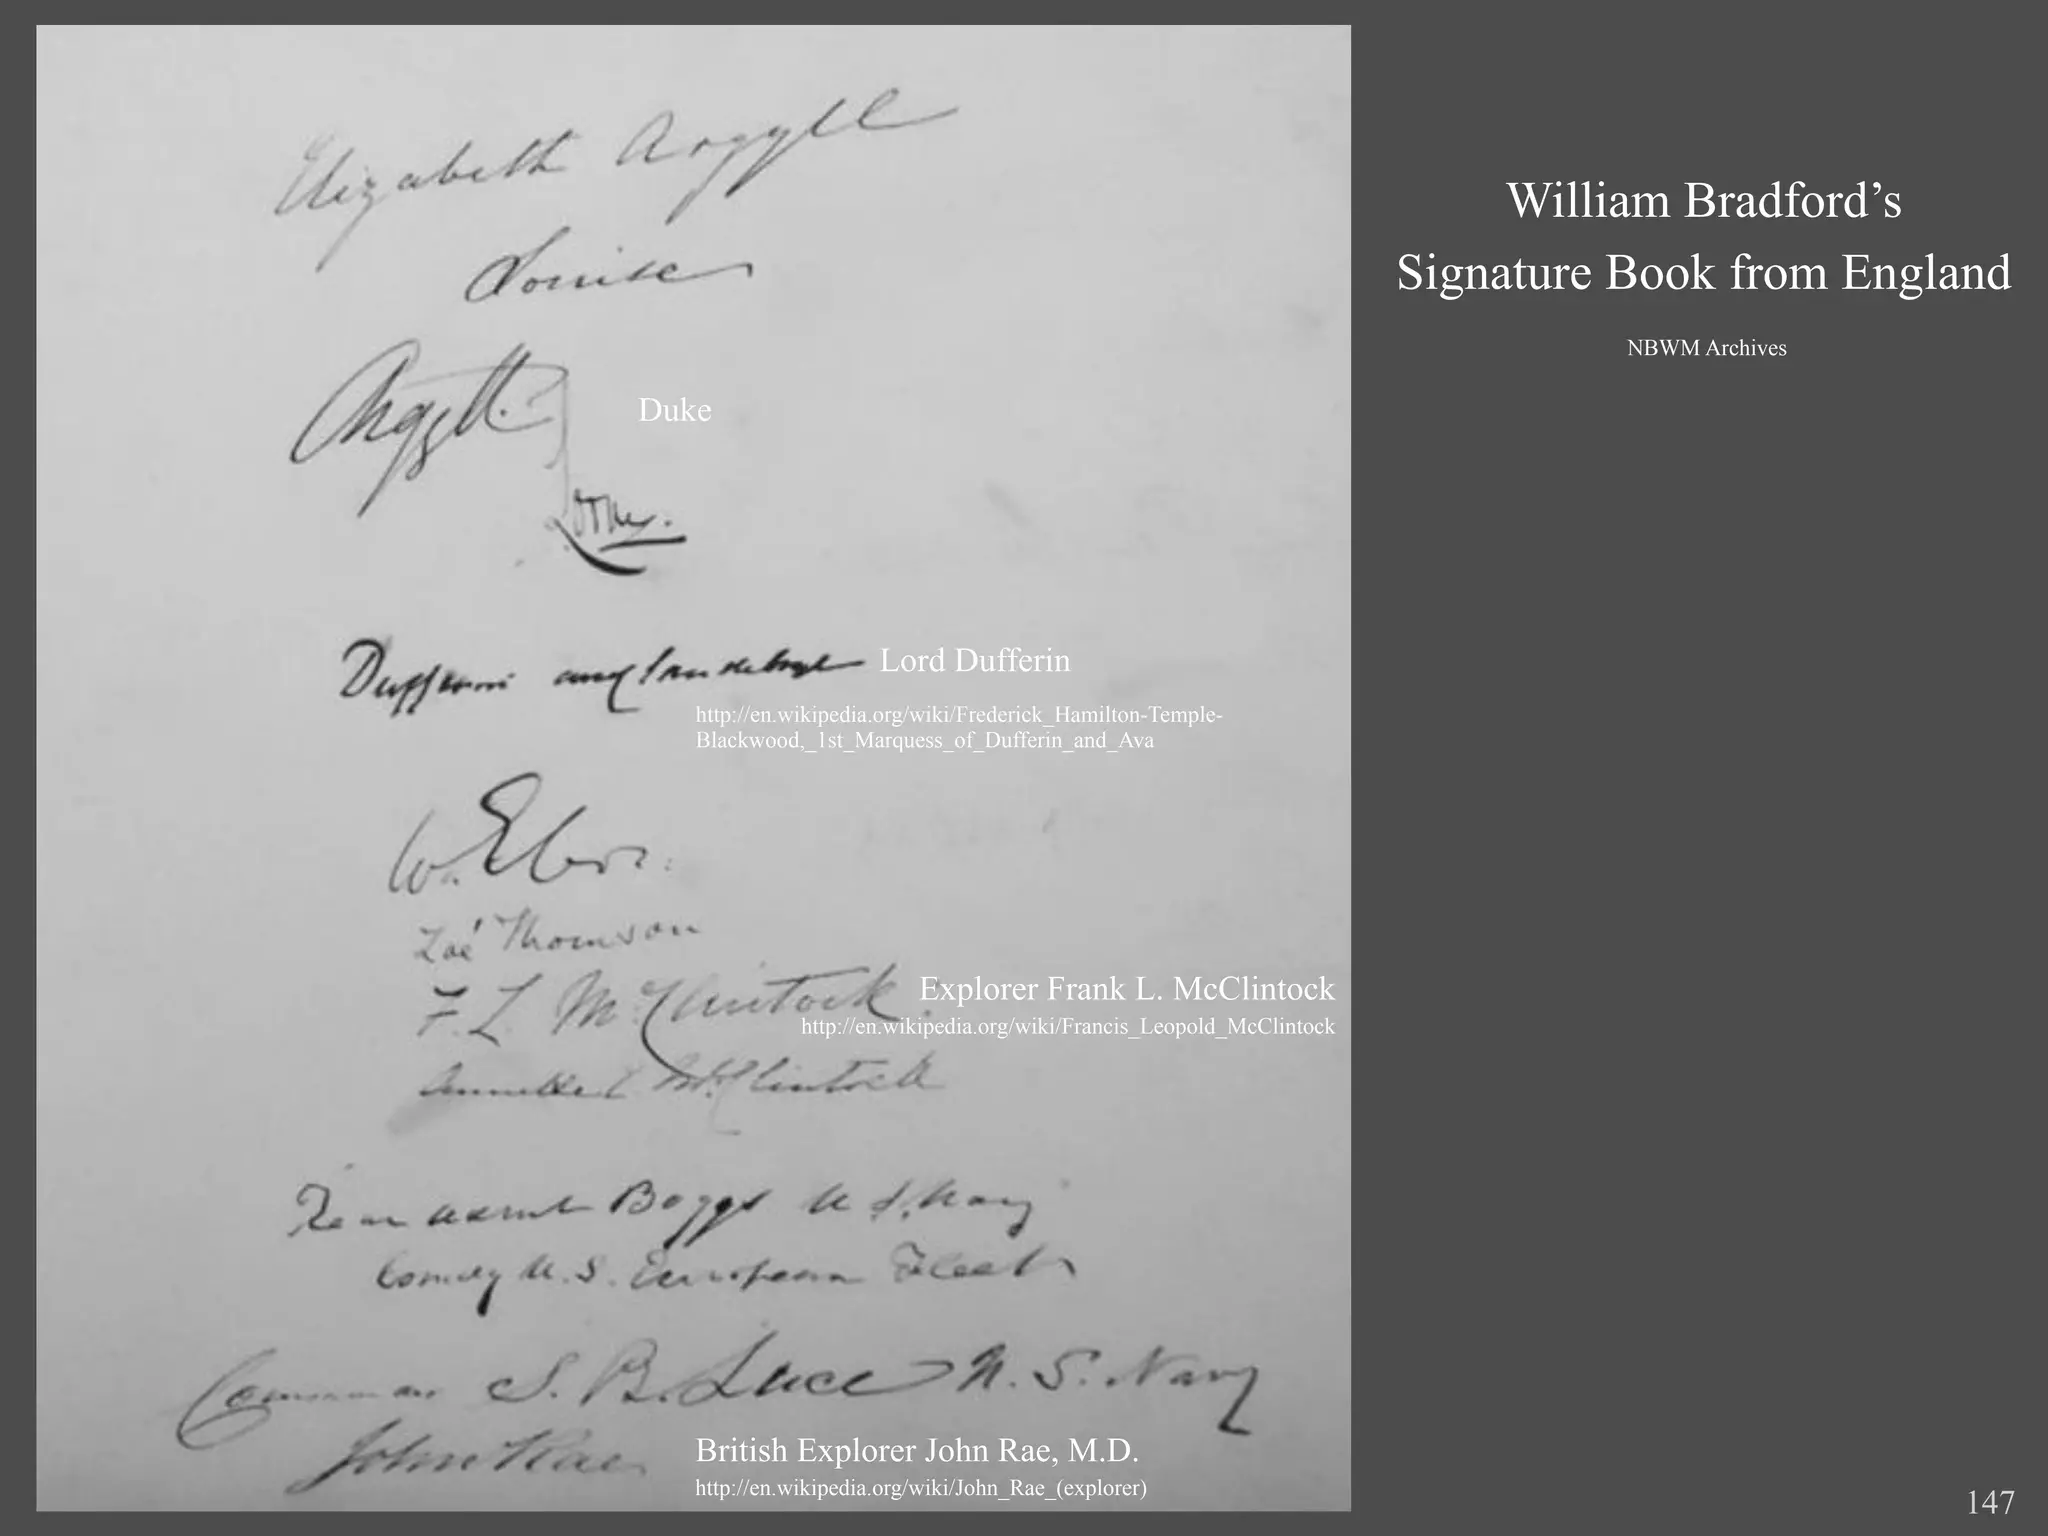 Elizabeth Argyll
Louise
Argyll.
Duke
Dufferin and Clandeboye
Lord Dufferin
http://en.wikipedia.org/wiki/Frederick_Hamilton-Temple-
Blackwood,_1st_Marquess_of_Dufferin_and_Ava
Zoé Thomson
F. L. McClintock.
Explorer Frank L. McClintock
http://en.wikipedia.org/wiki/Francis_Leopold_McClintock
Annette E McClintock
Rear Admiral Boggs U.S. Navy
Comdg U.S. European Fleet
Commander S. B. Luce U.S. Navy
John Rae
British Explorer John Rae, M.D.
http://en.wikipedia.org/wiki/John_Rae_(explorer)
William Bradford’s
Signature Book from England
NBWM Archives
147